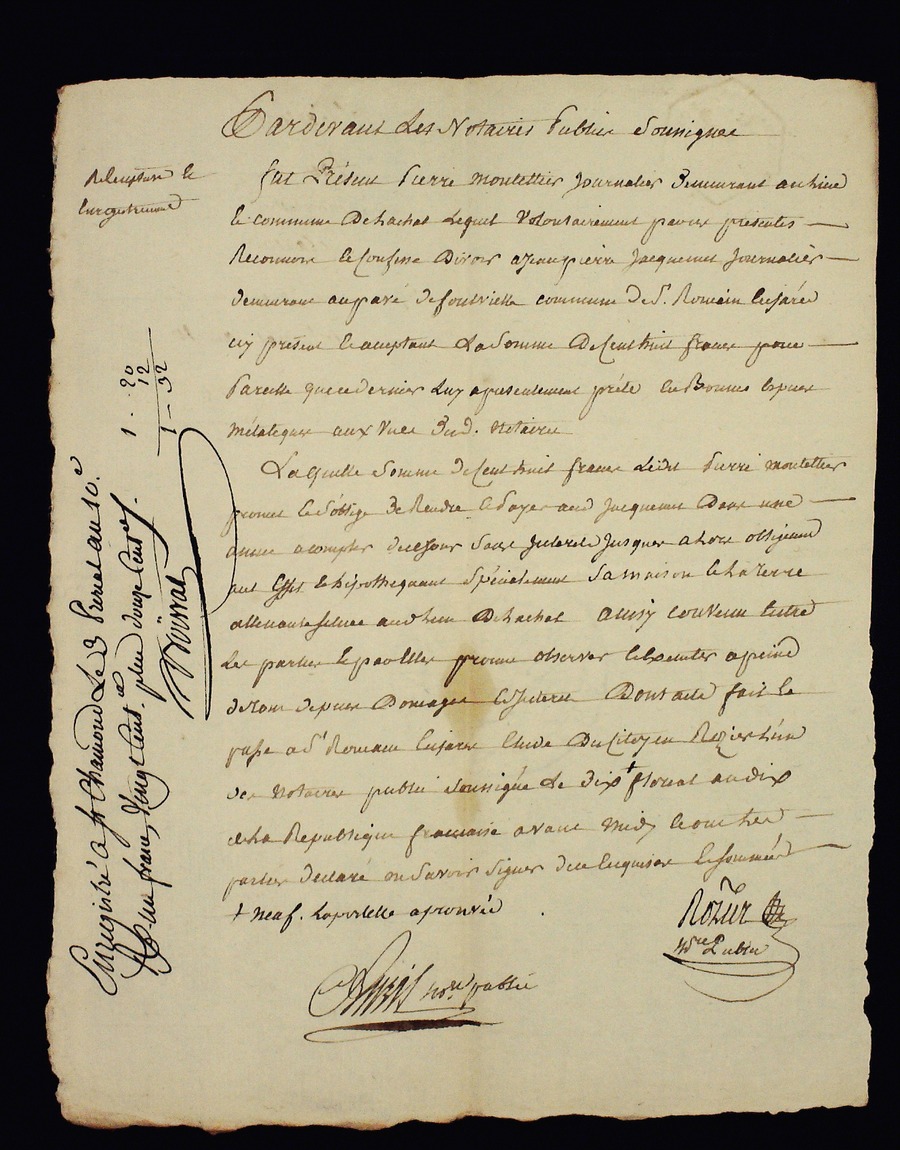 Pardevant Les Notaires Publics Soussignes
fut Présent Pierre montellier Journalier Demeurant au lieu
et commune De Lachal Lequel Volontairement par ces presentes
Reconnoit et Confesse Devoir a Jean pierre Jacquemet Journalier
demeurant au paré de fontvielle commune de St. Romain En Jaréz
icy présent et acceptant La Somme De Cent huit francs pour
Pareille que ce dernier Luy a presentement prété En Bonnes Especes
métaliques aux Vues Desd. Notaires
La quelle Somme de Cent huit francs Ledit Pierre montellier
promet et S'oblige De Rendre et Payer aud Jacquemet Dans une
année a compter de ce Jour Sans Interets Jusques alors obligeant
aux Effets et hipothequant Spécialement Sa maison et La Terre
attenante Située aud lieu De Lachal ainsy convenu Entre
Les parties Lesquelles promis observer et Executer a peine
de tous depens Domages et Interets Dont acte fait et
passé a St Romain En Jarez Etude Du Citoyen Rozier L'un
des Notaires publics Soussignés Le Dix + floreal an dix
de La Republique francaise avant midy et ont Les
parties Declaré ne Savoir Signer de ce Enquises et Sommées
+ Neuf. Laportelle aprouvée
Rozier
Nore Public
nore public
Enregistré a St Chamond Le 23 floreal an 10.
R un franc, Vingt Cent. plus douze Cent
1 . 20
12
1 - 32